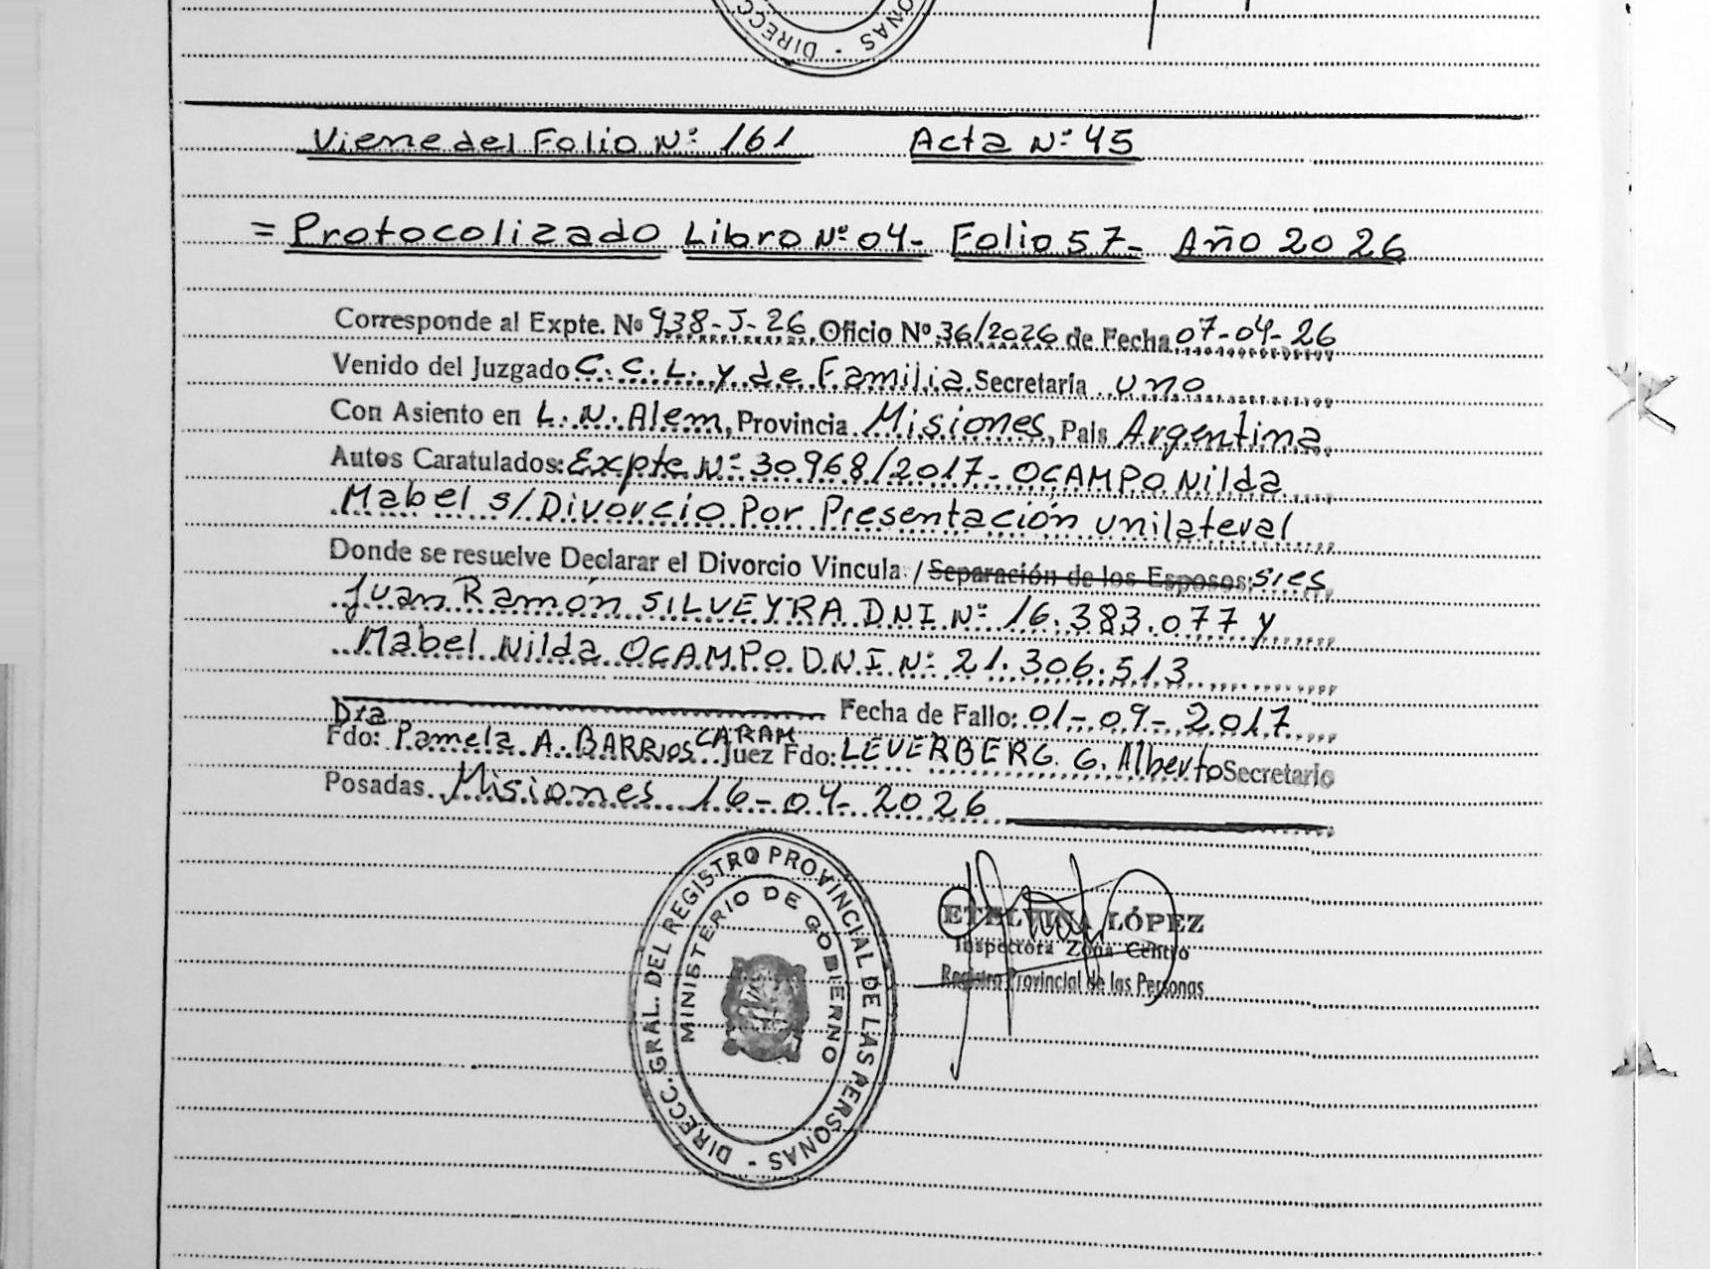 DIRECC
ONAS -
Viene del Folio Nº 161 Acta Nº 45
= Protocolizado Libro Nº 04- Folio 57- Año 2026
Corresponde al Expte. Nº 938-J-26 Oficio Nº 36/2026 de Fecha 07-04-26
Venido del Juzgado C.C.L. y de Familia Secretaria uno
Con Asiento en L.N. Alem, Provincia Misiones, País Argentina.
Autos Caratulados: Expte Nº 30968/2017- OCAMPO Nilda
Mabel s/Divorcio Por Presentación unilateral
Donde se resuelve Declarar el Divorcio Vincula / Separación de los Esposos: sres
Juan Ramón SILVEYRA DNI Nº 16.383.077 y
Mabel Nilda OCAMPO D.N.I. Nº 21.306.513
Fecha de Fallo: 01-09-2017
Dra
Fdo: Pamela A. BARRIOS CARAM Juez Fdo: LEVERBERG G. Alberto Secretario
Posadas. Misiones 16-04-2026
DIRECC. GRAL. DEL REGISTRO PROVINCIAL DE LAS PERSONAS -
MINISTERIO DE GOBIERNO
ETELVINA LÓPEZ
Inspectora Zona Centro
Registro Provincial de las Personas